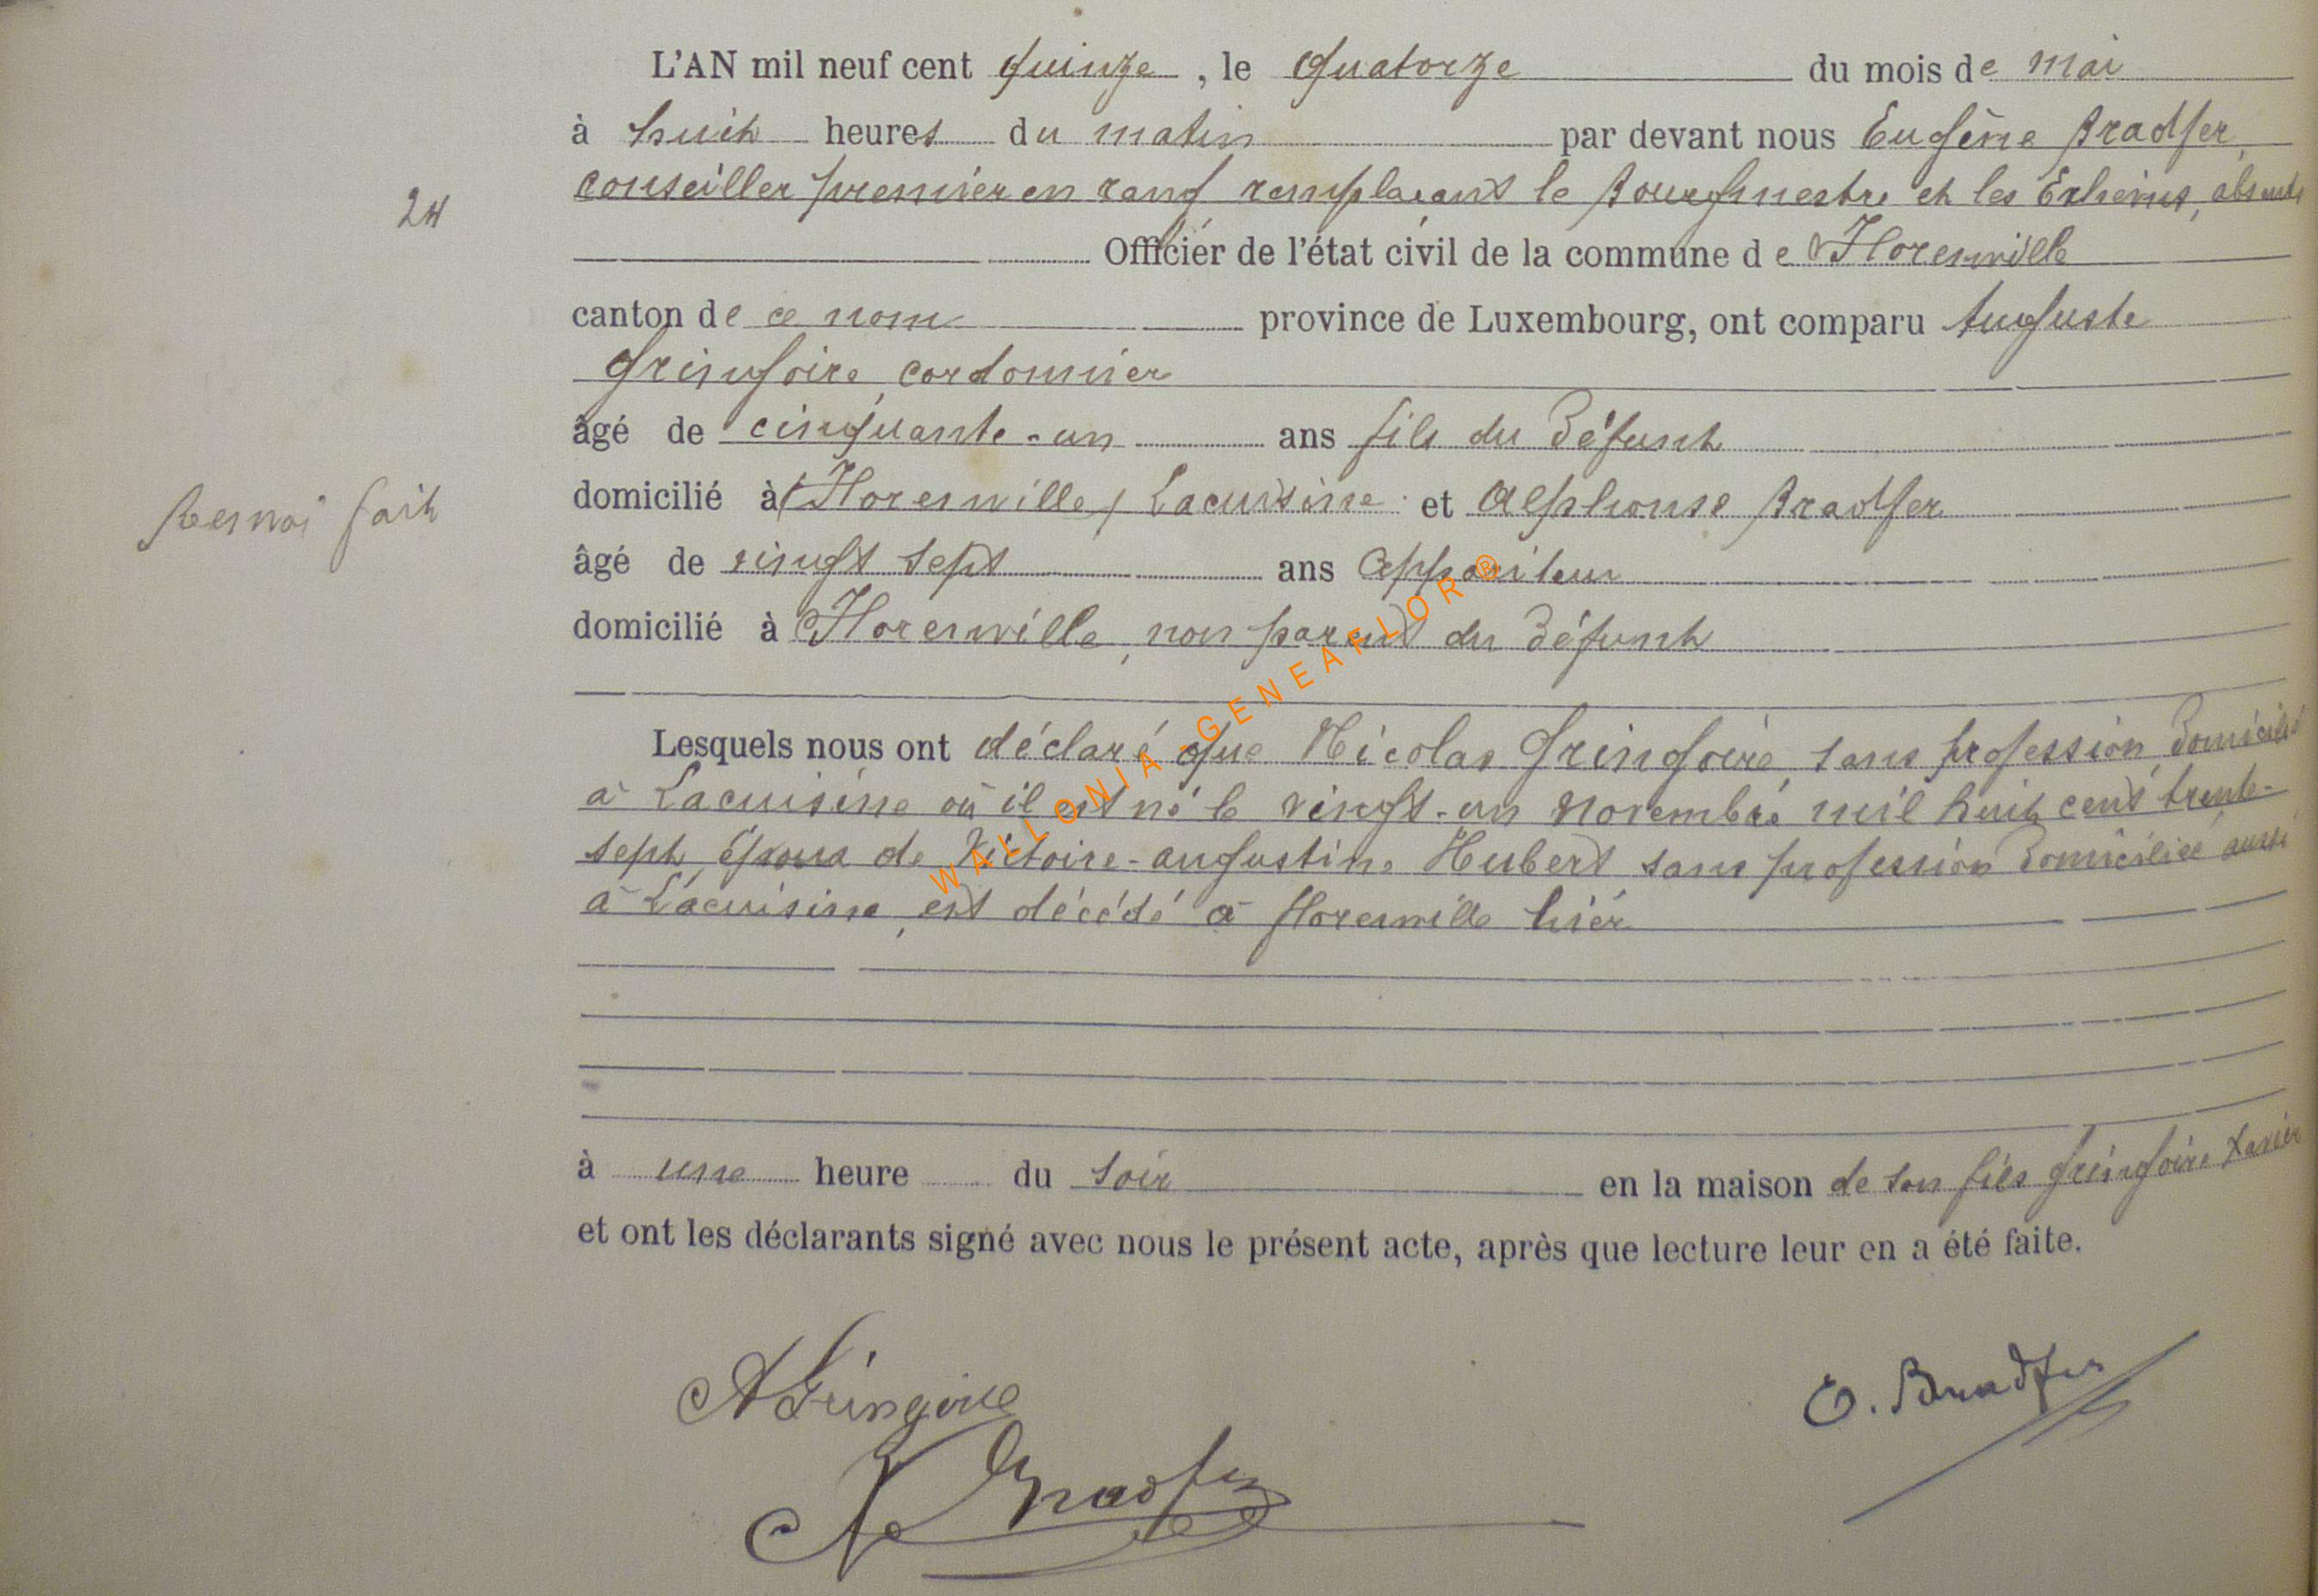 L'AN mil neuf cent quinze, le quatorze du mois de mai
à huit heures du matin par devant nous Eugène Bradfer,
24
conseiller premier en rang remplaçant le Bourgmestre et les Echevins, absents
Officier de l'état civil de la commune de Florenville
canton de ce nom province de Luxembourg, ont comparu Auguste
Gringoire, cordonnier
âgé de cinquante-un ans fils du défunt
domicilié à (Florenville) Lacuisine et Alphonse Bradfer
Renvoi fait
âgé de vingt sept ans Appariteur
domicilié à Florenville, non parent du défunt
Lesquels nous ont déclaré que Nicolas Gringoire, sans profession, domicilié
à Lacuisine où il est né le vingt-un novembre mil huit cent trente-
sept, époux de Victoire-Augustine Hubert sans profession domiciliée aussi
à Lacuisine, est décédé à Florenville hier
à une heure du soir en la maison de son fils Gringoire Xavier
et ont les déclarants signé avec nous le présent acte, après que lecture leur en a été faite.
A Gringoire
E. Bradfer
A Bradfer
WALLONIA-GENEAFLOR®